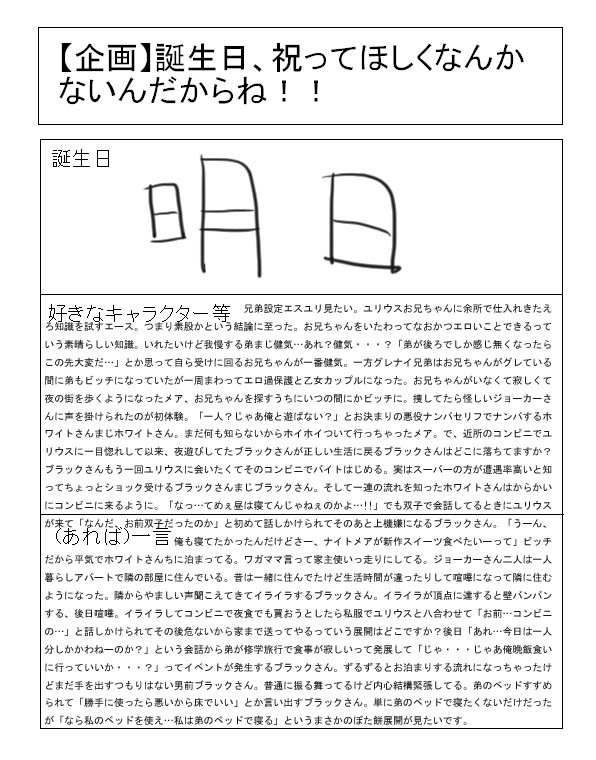 【企画】誕生日、祝ってほしくなんか
ないんだからね！！
誕生日
明日
好きなキャラクター等
兄弟設定エスユリ見たい。ユリウスお兄ちゃんに余所で仕入れきたえ
ろ知識を試すエース。つまり素股かという結論に至った。お兄ちゃんをいたわってなおかつエロいことできるって
いう素晴らしい知識。いれたいけど我慢する弟まじ健気…あれ？健気・・・？「弟が後ろでしか感じ無くなったら
この先大変だ…」とか思って自ら受けに回るお兄ちゃんが一番健気。一方グレナイ兄弟はお兄ちゃんがグレている
間に弟もビッチになっていたが一周まわってエロ過保護と乙女カップルになった。お兄ちゃんがいなくて寂しくて
夜の街を歩くようになったメア、お兄ちゃんを探すうちにいつの間にかビッチに。捜してたら怪しいジョーカーさ
んに声を掛けられたのが初体験。「一人？じゃあ俺と遊ばない？」とお決まりの悪役ナンパセリフでナンパするホ
ワイトさんまじホワイトさん。まだ何も知らないからホイホイついて行っちゃったメア。で、近所のコンビニでユ
リウスに一目惚れして以来、夜遊びしてたブラックさんが正しい生活に戻るブラックさんはどこに落ちてますか？
ブラックさんもう一回ユリウスに会いたくてそのコンビニでバイトはじめる。実はスーパーの方が遭遇率高いと知
ってちょっとショック受けるブラックさんまじブラックさん。そして一連の流れを知ったホワイトさんはからかい
にコンビニに来るように。「なっ…てめぇ昼は寝てんじゃねぇのかよ…!!」でも双子で会話してるときにユリウス
が来て「なんだ、お前双子だったのか」と初めて話しかけられてそのあと上機嫌になるブラックさん。「うーん、
(あれば)一言
俺も寝てたかったんだけどさー、ナイトメアが新作スイーツ食べたいーって」ビッチ
だから平気でホワイトさんちに泊まってる。ワガママ言って家主使いっ走りにしてる。ジョーカーさん二人は一人
暮らしアパートで隣の部屋に住んでいる。昔は一緒に住んでたけど生活時間が違ったりして喧嘩になって隣に住む
ようになった。隣からやましい声聞こえてきてイライラするブラックさん。イライラが頂点に達すると壁バンバン
する、後日喧嘩。イライラしてコンビニで夜食でも買おうとしたら私服でユリウスと八合わせて「お前…コンビニ
の…」と話しかけられてその後危ないから家まで送ってやるっていう展開はどこですか？後日「あれ…今日は一人
分しかかわねーのか？」という会話から弟が修学旅行で食事が寂しいって発展して「じゃ・・・じゃあ俺晩飯食い
に行っていいか・・・？」ってイベントが発生するブラックさん。ずるずるとお泊まりする流れになっちゃったけ
どまだ手を出すつもりはない男前ブラックさん。普通に振る舞ってるけど内心結構緊張してる。弟のベッドすすめ
られて「勝手に使ったら悪いから床でいい」とか言い出すブラックさん。単に弟のベッドで寝たくないだけだった
が「なら私のベッドを使え…私は弟のベッドで寝る」というまさかのぼた餅展開が見たいです。